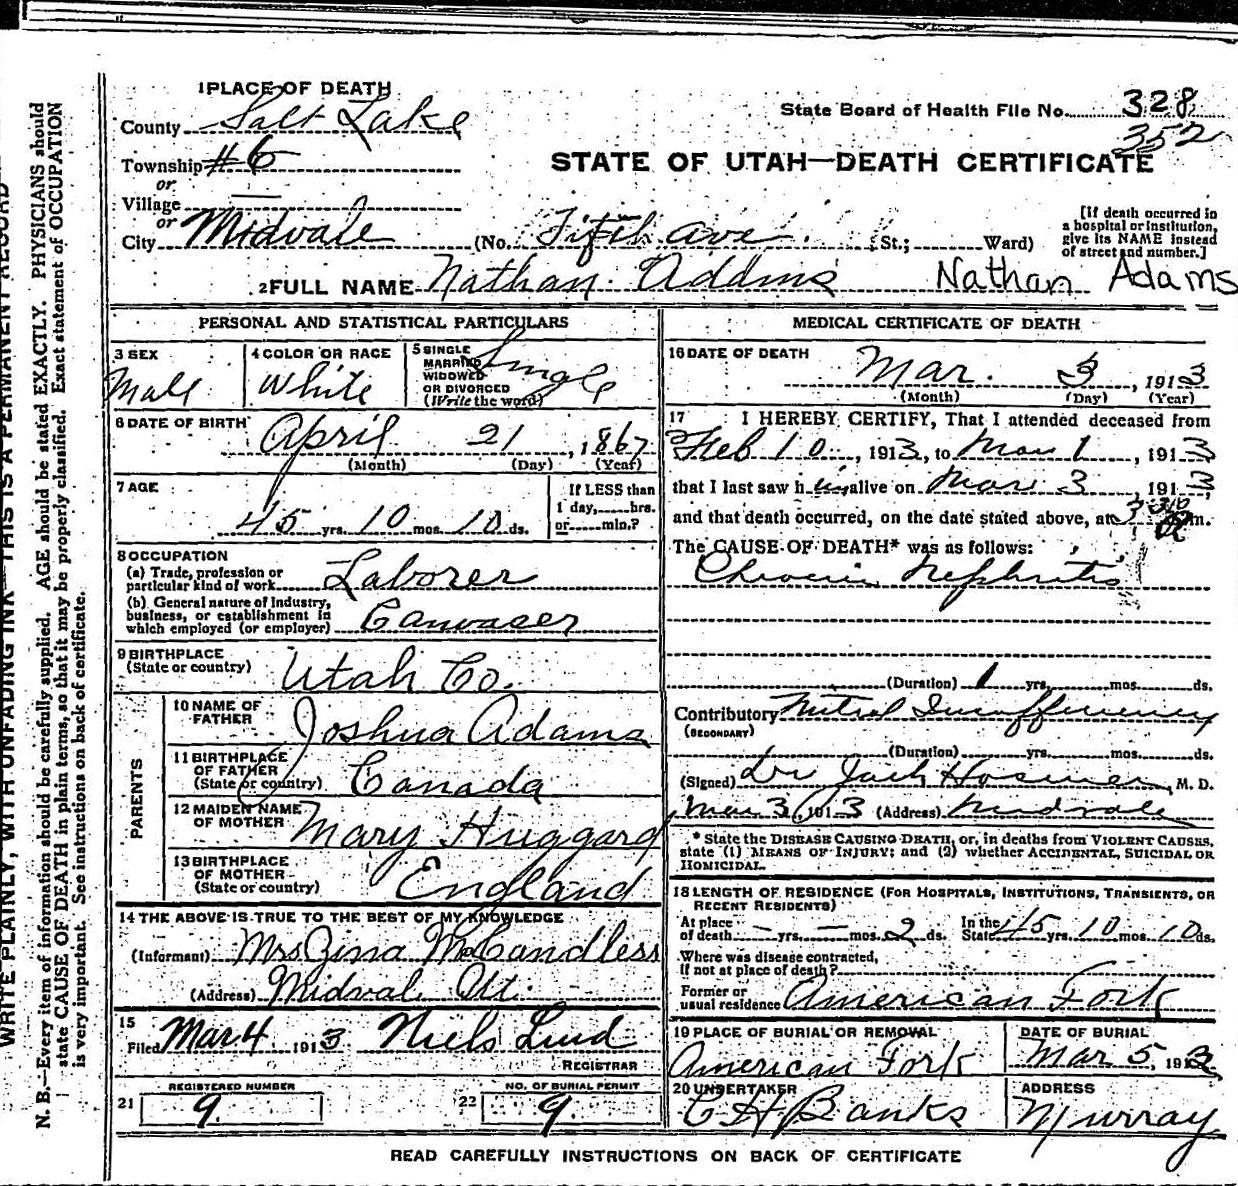 1 PLACE OF DEATH
State Board of Health File No. 328
352
County Salt Lake
Township #6
or
Village —
or
City Midvale (No. Fifth Ave. St.; Ward)
STATE OF UTAH—DEATH CERTIFICATE
[If death occurred in a hospital or institution, give its NAME instead of street and number.]
2 FULL NAME Nathan Adams Nathan Adams
PERSONAL AND STATISTICAL PARTICULARS
3 SEX Male
4 COLOR OR RACE White
5 SINGLE MARRIED WIDOWED OR DIVORCED (Write the word) Single
6 DATE OF BIRTH April 21, 1867
(Month) (Day) (Year)
7 AGE 45 yrs. 10 mos. 10 ds.
If LESS than 1 day, hrs. or min.?
8 OCCUPATION
(a) Trade, profession or particular kind of work Laborer
(b) General nature of industry, business, or establishment in which employed (or employer) Canvaser
9 BIRTHPLACE (State or country) Utah Co.
PARENTS
10 NAME OF FATHER Joshua Adams
11 BIRTHPLACE OF FATHER (State or country) Canada
12 MAIDEN NAME OF MOTHER Mary Huggard
13 BIRTHPLACE OF MOTHER (State or country) England
14 THE ABOVE IS TRUE TO THE BEST OF MY KNOWLEDGE
(Informant) Mrs Zina McCandless
(Address) Midvale Ut.
15 Filed Mar 4 1913 Niels Lind
REGISTRAR
REGISTERED NUMBER
21 9
NO. OF BURIAL PERMIT
22 9
MEDICAL CERTIFICATE OF DEATH
16 DATE OF DEATH Mar. 3, 1913
(Month) (Day) (Year)
17 I HEREBY CERTIFY, That I attended deceased from
Feb 10, 1913, to Mar 1, 1913
that I last saw him alive on Mar 3 1913
and that death occurred, on the date stated above, at 3 m.
The CAUSE OF DEATH* was as follows:
Chronic Nephritis
(Duration) 1 yrs. mos. ds.
Contributory Mitral Insufficiency
(SECONDARY)
(Duration) yrs. mos. ds.
(Signed) Dr Jack Hosmer, M. D.
Mar 3, 1913 (Address) Midvale
* State the DISEASE CAUSING DEATH, or, in deaths from VIOLENT CAUSES, state (1) MEANS OF INJURY; and (2) whether ACCIDENTAL, SUICIDAL OR HOMICIDAL.
18 LENGTH OF RESIDENCE (FOR HOSPITALS, INSTITUTIONS, TRANSIENTS, OR RECENT RESIDENTS)
At place of death — yrs. — mos. 2 ds. In the State 45 yrs. 10 mos. 10 ds.
Where was disease contracted, if not at place of death?
Former or usual residence American Fork
19 PLACE OF BURIAL OR REMOVAL American Fork
DATE OF BURIAL Mar 5, 1913
20 UNDERTAKER C H Banks
ADDRESS Murray
READ CAREFULLY INSTRUCTIONS ON BACK OF CERTIFICATE
WRITE PLAINLY, WITH UNFADING INK—THIS IS A PERMANENT RECORD
N. B.—Every item of information should be carefully supplied. AGE should be stated EXACTLY. PHYSICIANS should
state CAUSE OF DEATH in plain terms, so that it may be properly classified. Exact statement of OCCUPATION
is very important. See instructions on back of certificate.